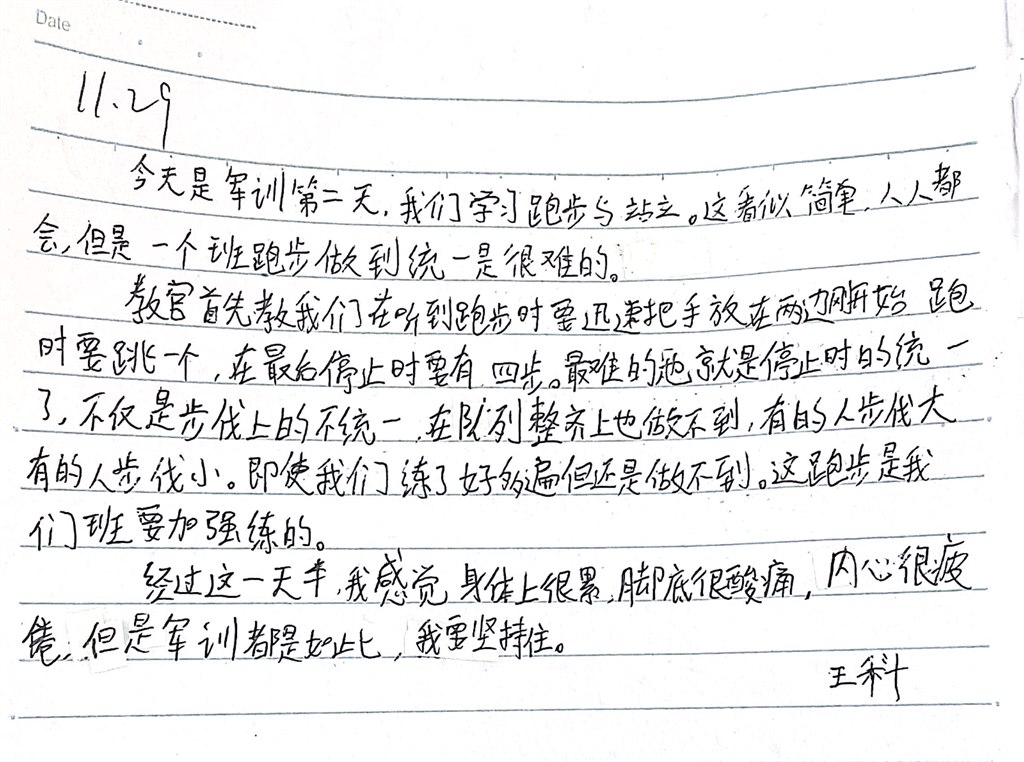 Date
11.29
今天是军训第二天,我们学习跑步与站立。这看似简单,人人都
会,但是一个班跑步做到统一是很难的。
教官首先教我们在听到跑步时要迅速把手放在两边刚开始跑
时要跳一个,在最后停止时要有四步。最难的就是停止时的统一
了,不仅是步伐上的不统一,在队列整齐上也做不到,有的人步伐大
有的人步伐小。即使我们练了好多遍但还是做不到。这跑步是我
们班要加强练的。
经过这一天半,我感觉身体上很累,脚底很酸痛,内心很疲
倦,但是军训都是如此,我要坚持住。
王科